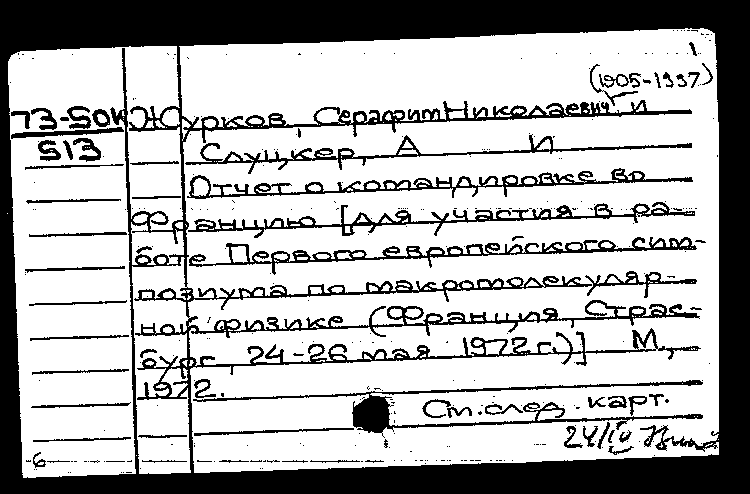 1
(1905-1997)
73-50К Журков, Серафим Николаевич и
513 Слуцкер, А И
Отчет о командировке во
Францию [для участия в ра-
боте Первого европейского сим-
позиума по макромолекуляр-
ной физике (Франция, Страс-
бург, 24-26 мая 1972 г.)] М.,
1972.
См. след. карт.
24/IV
6